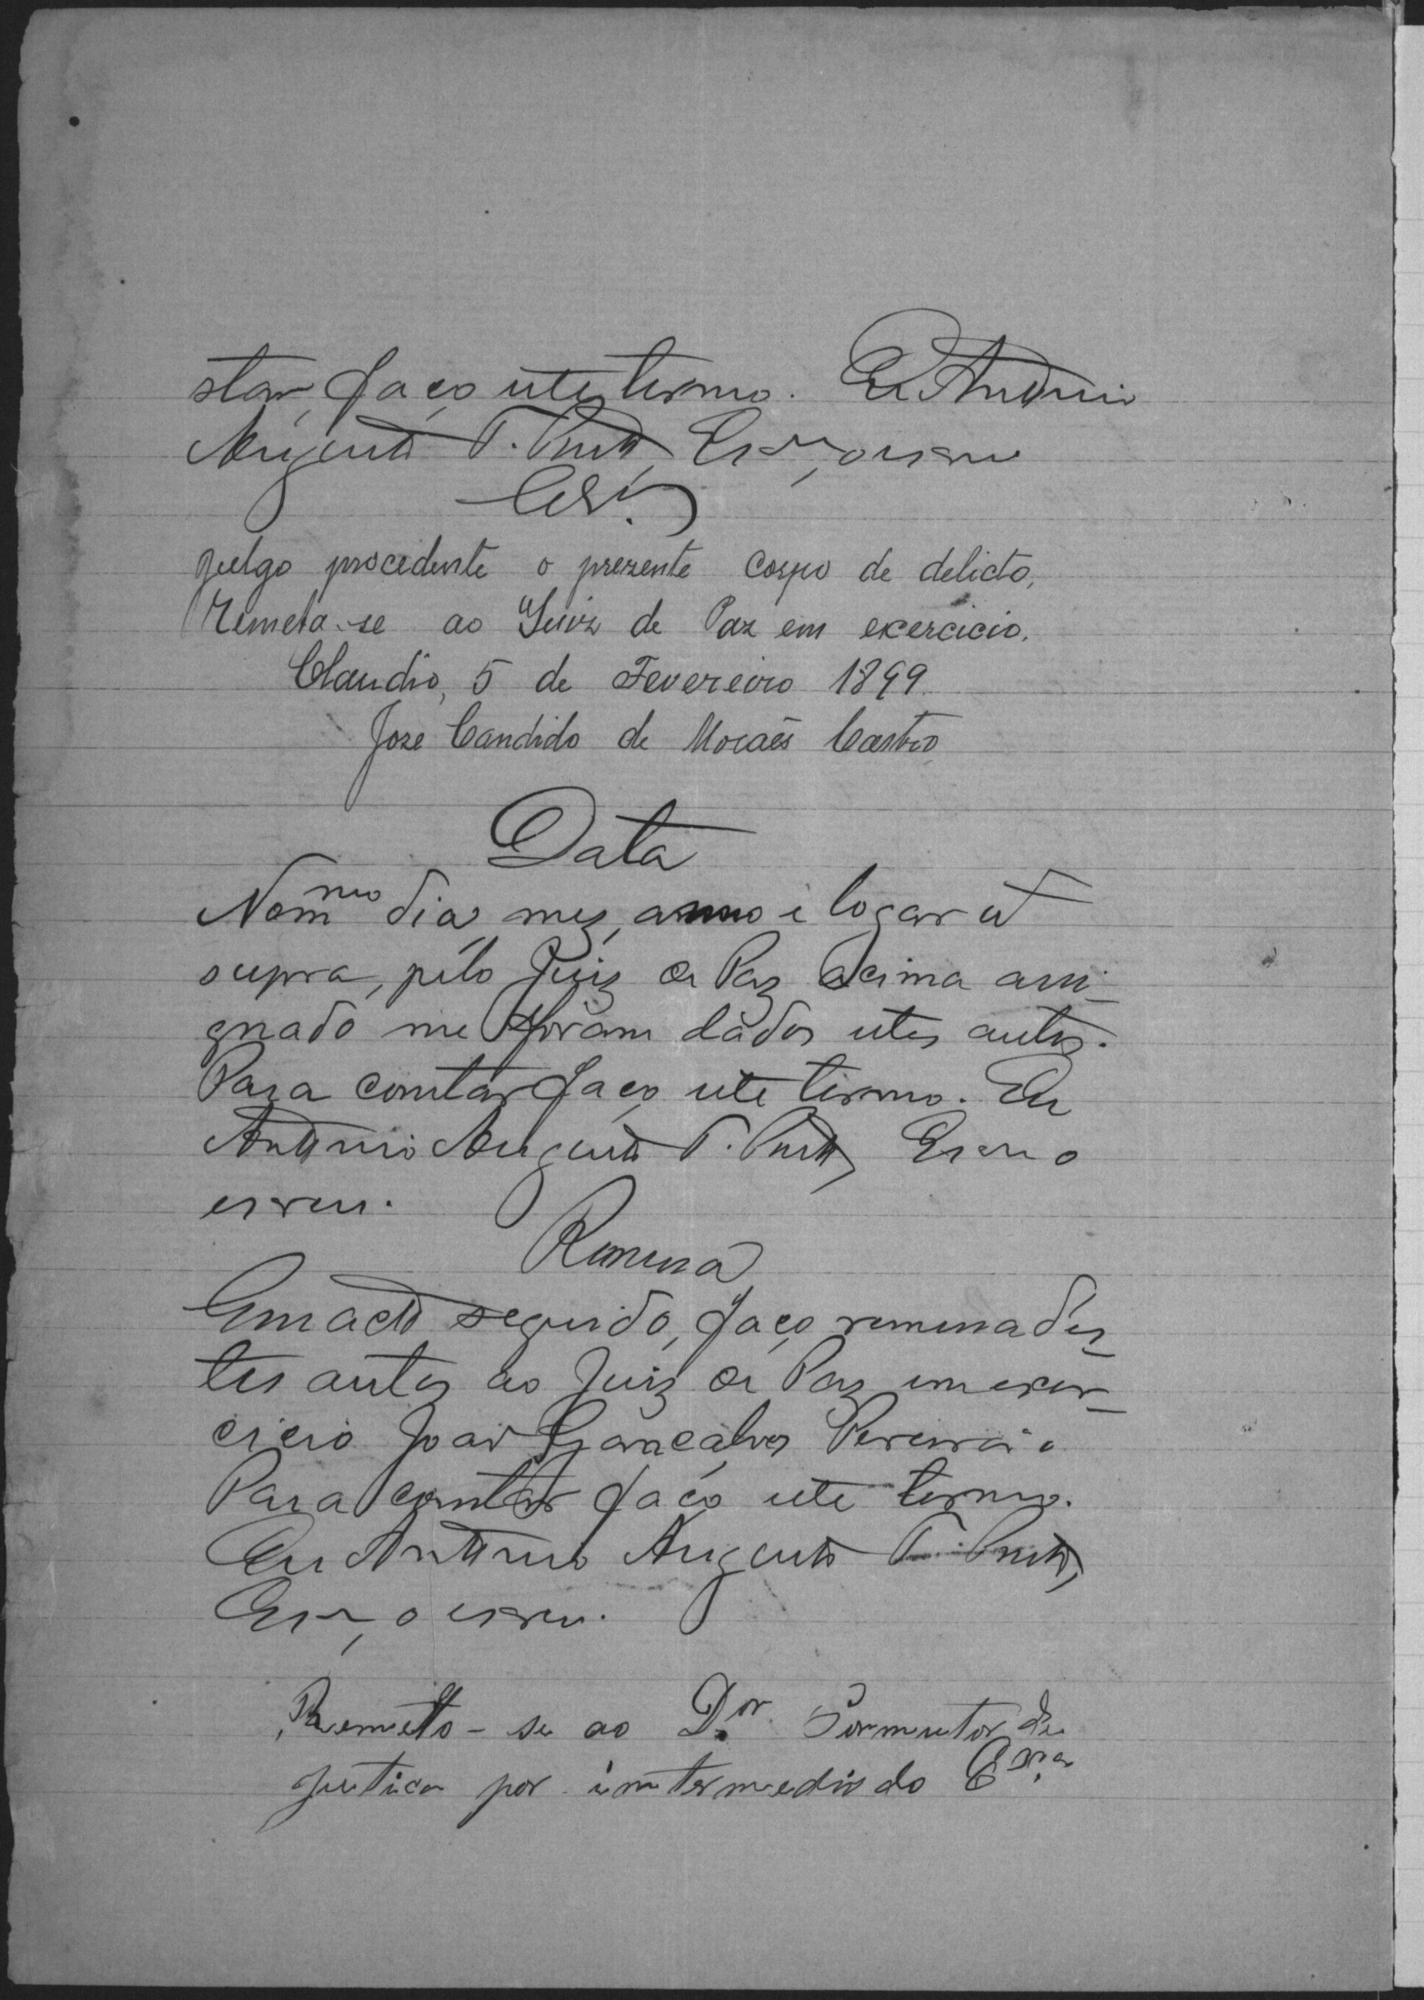 star, faço este termo. Eu Antonio
Augusto T. Escrm, o escrevi
Cls.
Julgo procedente o prezente corpo de delicto,
Remeta-se ao Juiz de Paz em exercicio.
Claudio, 5 de Fevereiro 1899
Jose Candido de Moraes Castro
Data
No mmo dia, mez, anno e logar ut
supra, pelo Juiz de Paz acima assi-
gnado me foram dados estes autos.
Para constar faço este termo. Eu
Antonio Augusto T. o
escrevi.
Remessa
Em acto seguido, faço remessa des-
tes autos ao Juiz de Paz em exer-
cicio João Gonçalves Pereira.
Para constar faço este termo.
Eu Antonio Augusto T.
o escrevi.
Remetto-se ao Dor. Pormutor de
Justica por intermedio do